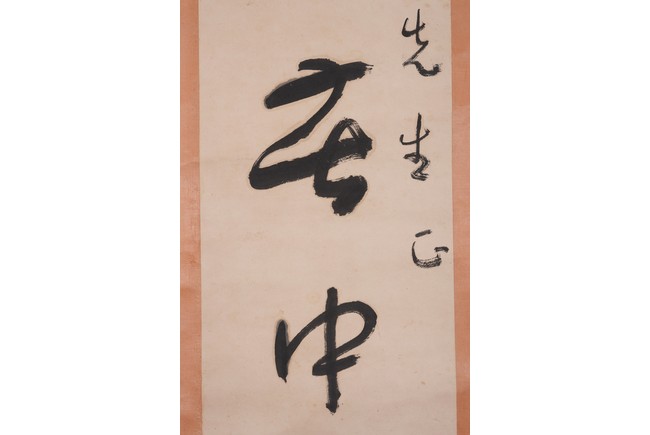 先生正
中